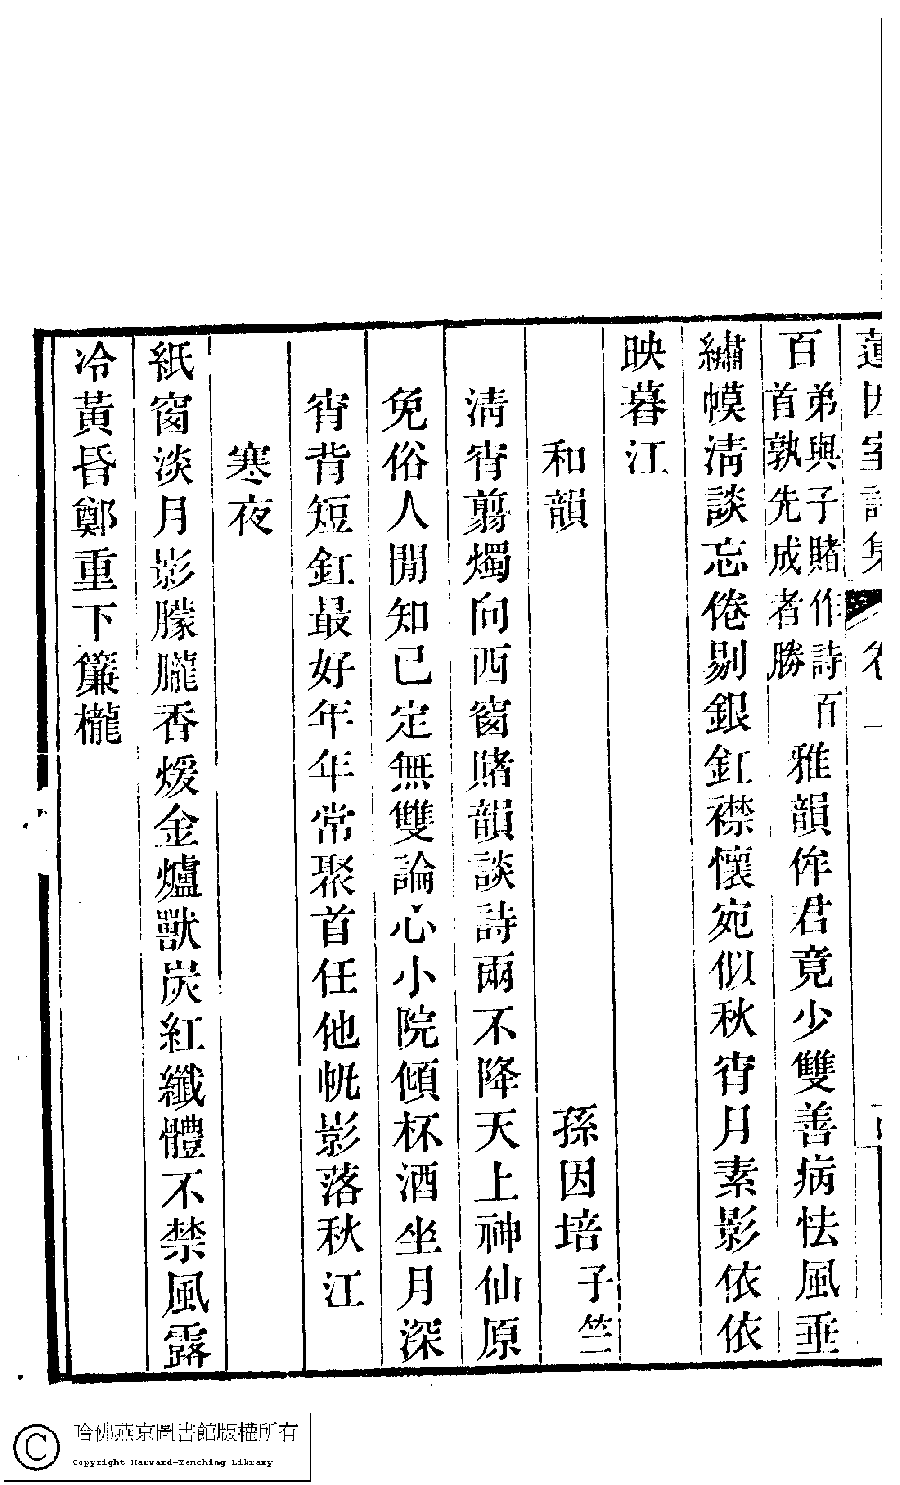 蓮因室詩集 卷一
百弟與子賭作詩百首孰先成者勝雅韻侔君竟少雙善病怯風垂
繡幙清談忘倦剔銀釭襟懷宛似秋宵月素影依依
映暮江
和韻 孫因培子竺
清宵翦燭向西窗賭韻談詩兩不降天上神仙原
免俗人閒知已定無雙論心小院傾杯酒坐月深
宵背短釭最好年年常聚首任他帆影落秋江
寒夜
紙窗淡月影朦朧香煖金爐獸炭紅纖體不禁風露
冷黃昏鄭重下簾櫳
哈佛燕京圖書館版權所有
Copyright Harvard-Yenching Library